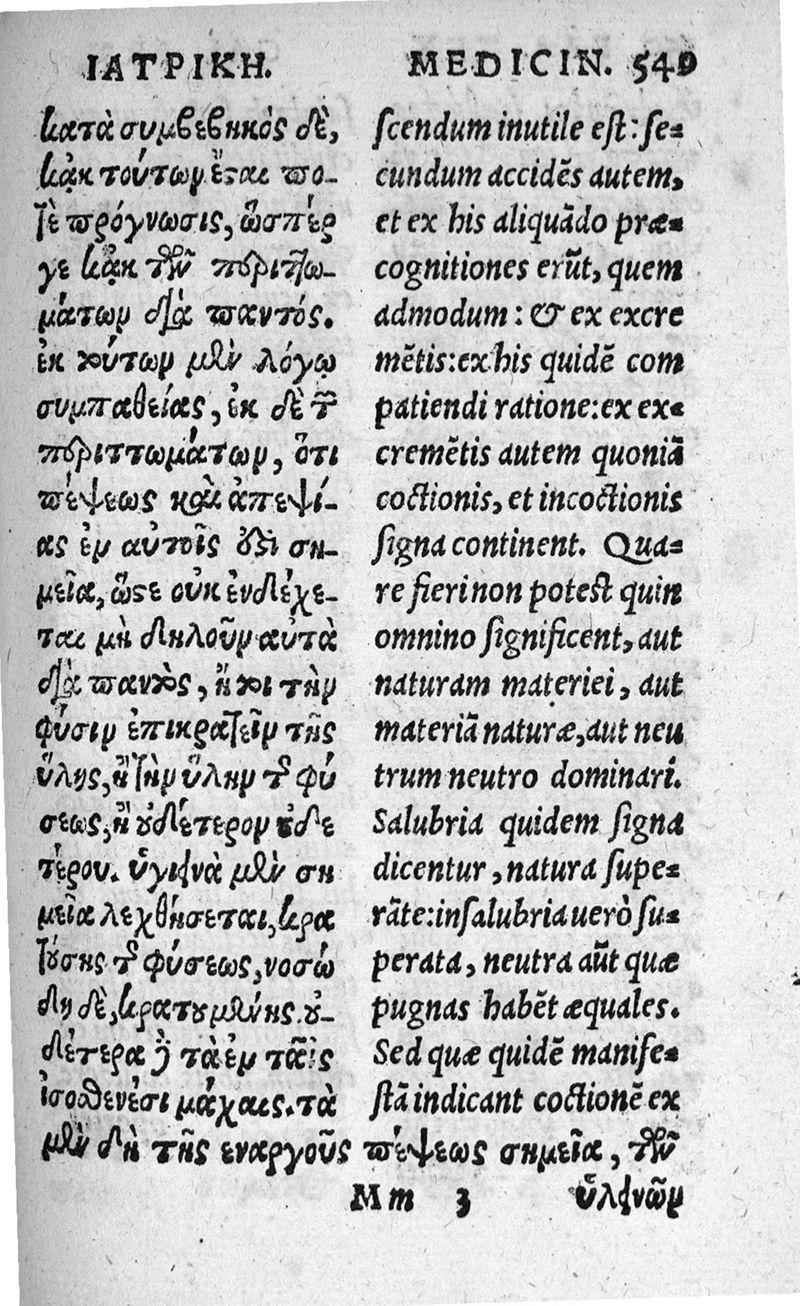 ΙΑΤΡΙΚΗ.
κατὰ συμβεβηκὸς δὲ,
κἀκ τούτων ἔςαι πο-
τὲ πρόγνωσις, ὥσπερ
γε κἀκ τῶν περιττω-
μάτων διὰ παντός.
ἐκ τούτων μὲν λόγῳ
συμπαθείας, ἐκ δὲ τῶν
περιττωμάτων, ὅτι
πέψεως καὶ ἀπεψί-
ας ἐν αὐτοῖς ἐςι ση-
μεῖα, ὥςε οὐκ ἐνδέχε-
ται μὴ δηλοῦν αὐτὰ
διὰ παντὸς, ἤτοι τὴν
φύσιν ἐπικρατεῖν τῆς
ὕλης, ἢ τὴν ὕλην τῆς φύ
σεως, ἢ οὐδέτερον οὐδε
τέρου. ὑγιεινὰ μὲν ση
μεῖα λεχθήσεται, κρα
τούσης τῆς φύσεως, νοσώ
δη δὲ, κρατουμένης. οὐ-
δέτερα δὲ τὰ ἐν ταῖς
ἰσοσθενέσι μάχαις. τὰ
μὲν δὴ τῆς ἐναργοῦς πέψεως σημεῖα, τῶν
MEDICIN. 549
scendum inutile est: se-
cundum accidẽs autem,
et ex his aliquãdo præ-
cognitiones erũt, quem
admodum: & ex excre
mẽtis: ex his quidẽ com
patiendi ratione: ex ex-
cremẽtis autem quoniã
coctionis, et incoctionis
signa continent. Qua-
re fieri non potest quin
omnino significent, aut
naturam materiei, aut
materiã naturæ, aut neu
trum neutro dominari.
Salubria quidem signa
dicentur, natura supe-
rãte: insalubria uerò su-
perata, neutra aũt quæ
pugnas habẽt æquales.
Sed quæ quidẽ manife-
stã indicant coctionẽ ex
Mm 3 ὑλεινῶν